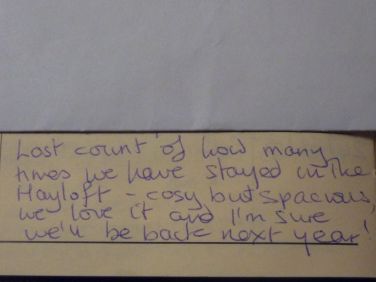 Lost count of how many
times we have stayed in the
Hayloft - cosy but spacious,
we love it and I'm sure
we'll be back next year!